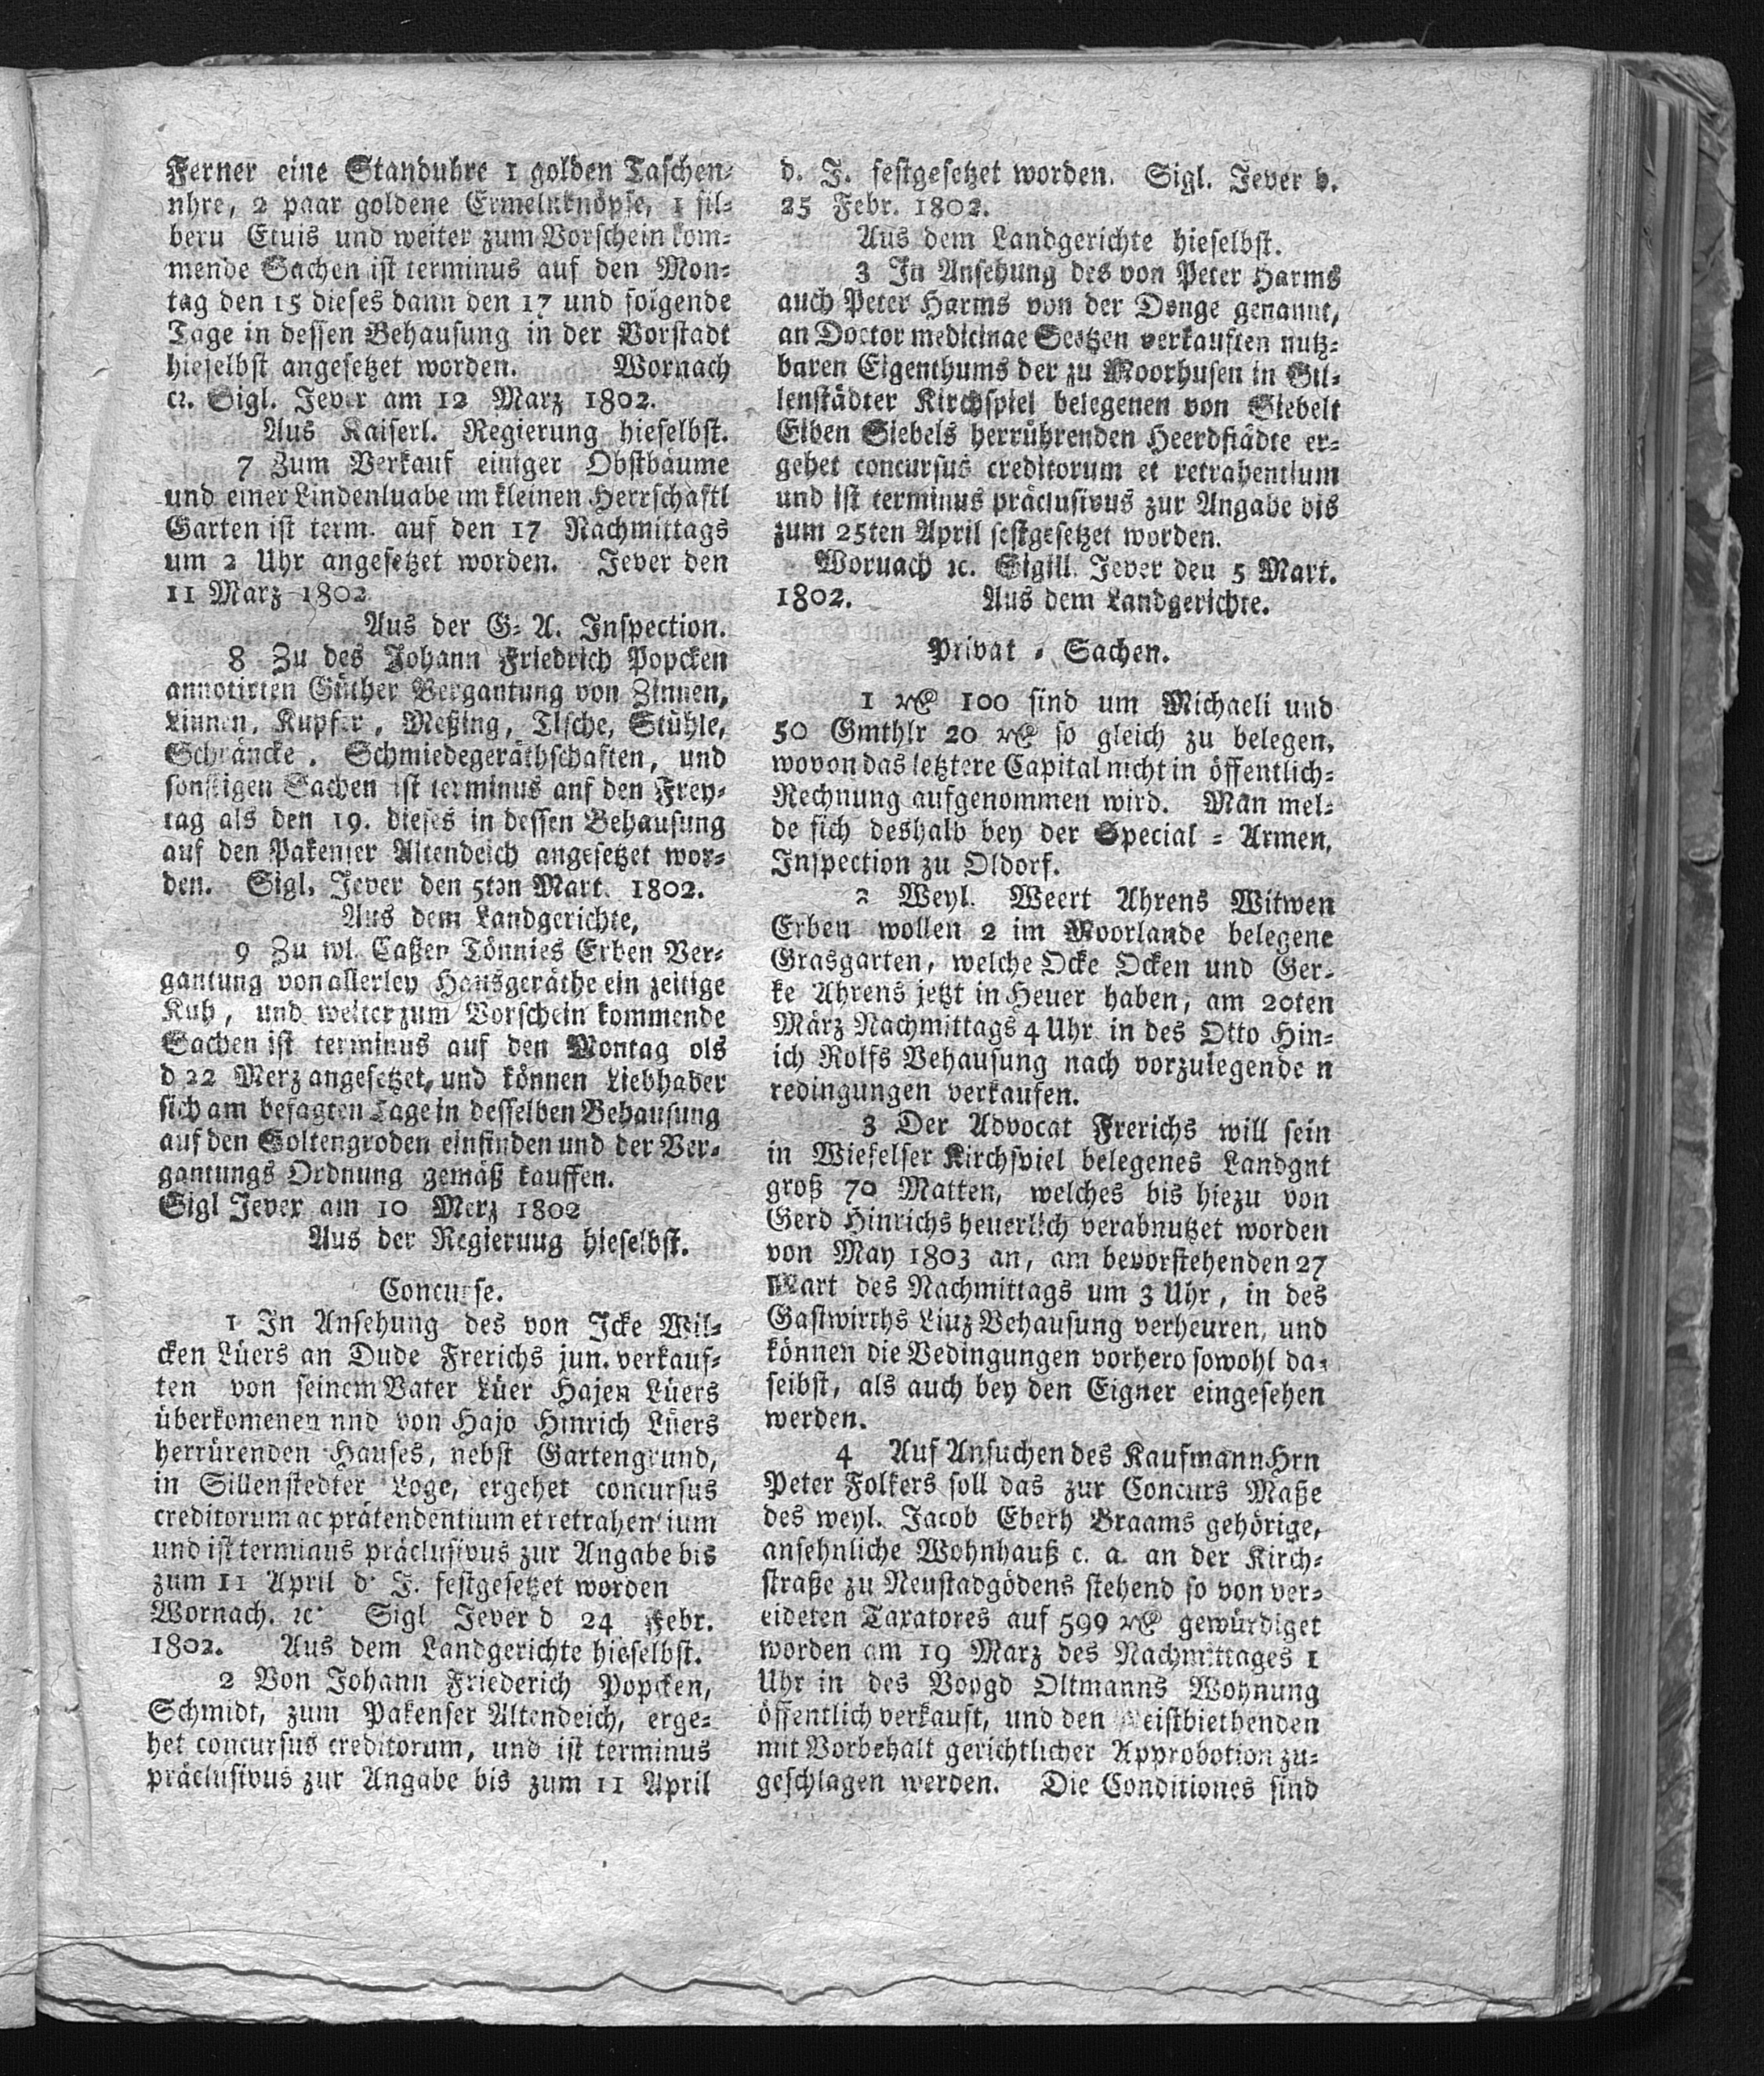 Ferner eine Standuhre 1 golden Taschen-
nhre, 2 paar goldene Ermelnknöpfe, 1 sil-
beru Etuis und weiter zum Vorschein kom-
mende Sachen ist terminus auf den Mon-
tag den 15 dieses dann den 17 und folgende
Tage in dessen Behausung in der Vorstadt
hieselbst angesetzet worden. Wornach
ꝛc. Sigl. Jever am 12 Marz 1802.
Aus Kaiserl. Regierung hieselbst.
7 Zum Verkauf einiger Obstbäume
und einer Lindenluabe im kleinen Herrschaftl
Garten ist term. auf den 17 Nachmittags
um 2 Uhr angesetzet worden. Jever den
11 Marz 1802
Aus der G- A. Inspection.
8 Zu des Johann Friedrich Popcken
annotirten Güther Vergantung von Zinnen,
Linnen, Kupfer, Meßing, Tische, Stühle,
Schräncke. Schmiedegeräthschaften, und
sonstigen Sachen ist terminus anf den Frey-
tag als den 19. dieses in dessen Behausung
auf den Pakenser Altendeich angesetzet wor-
den. Sigl. Jever den 5ten Mart. 1802.
Aus dem Landgerichte,
9 Zu wl. Caßen Tönnies Erben Ver-
gantung von allerley Hausgeräthe ein zeitige
Kuh, und weiter zum Vorschein kommende
Sachen ist terminus auf den Montag ols
d 22 Merz angesetzet, und können Liebhaber
sich am besagten Tage in desselben Behausung
auf den Soltengroden einfinden und der Ver-
gantungs Ordnung gemäß kauffen.
Sigl Jever am 10 Merz 1802
Aus der Regieruug hieselbst.
Concurse.
1 In Ansehung des von Icke Wil-
cken Lüers an Dude Frerichs jun. verkauf-
ten von seinem Vater Lüer Hajen Lüers
überkomenen nnd von Hajo Hinrich Lüers
herrürenden Hauses, nebst Gartengrund,
in Sillenstedter Loge, ergehet concursus
creditorum ac prätendentium et retrahentium
und ist terminus präclusivus zur Angabe bis
zum 11 April d. J. festgesetzet worden
Wornach. ꝛc. Sigl Jever d 24 Febr.
1802. Aus dem Landgerichte hieselbst.
2 Von Johann Friederich Popcken,
Schmidt, zum Pakenser Altendeich, erge-
het concursus creditorum, und ist terminus
präclusivus zur Angabe bis zum 11 April
d. J. festgesetzet worden. Sigl. Jever d.
25 Febr. 1802.
Aus dem Landgerichte hieselbst.
3 In Ansehung des von Peter Harms
auch Peter Harms von der Donge genannt,
an Doctor medicinae verkauften nutz-
baren Eigenthums der zu Moorhusen in Sil-
lenstädter Kirchspiel belegenen von Siebelt
Eiben Siebels herrührenden Heerdstädte er-
gehet concursus creditorum et retrahentium
und ist terminus präclusivus zur Angabe bis
zum 25ten April festgesetzet worden.
Woruach ꝛc. Sigill. Jever den 5 Mart.
1802. Aus dem Landgerichte.
Privat - Sachen.
1 rE 100 sind um Michaeli und
50 Gmthlr 20 rE so gleich zu belegen,
wovon das letztere Capital nicht in öffentlich-
Rechnung aufgenommen wird. Man mel-
de sich deshalb bey der Special - Armen,
Inspection zu Oldorf.
2 Weyl. Weert Ahrens Witwen
Erben wollen 2 im Moorlande belegene
Grasgarten, welche Ocke Ocken und Ger-
ke Ahrens jetzt in Heuer haben, am 20ten
März Nachmittags 4 Uhr in des Otto Hin-
ich Rolfs Behausung nach vorzulegende n
redingungen verkaufen.
3 Der Advocat Frerichs will sein
in Wiefelser Kirchspiel belegenes Landgnt
groß 70 Matten, welches bis hiezu von
Gerd Hinrichs heuerlich verabnutzet worden
von May 1803 an, am bevorstehenden 27
Mart des Nachmittags um 3 Uhr, in des
Gastwirths Liuz Behausung verheuren, und
können die Bedingungen vorhero sowohl da-
selbst, als auch bey den Eigner eingesehen
werden.
4 Auf Ansuchen des Kaufmann Hrn
Peter Folkers soll das zur Concurs Maße
des weyl. Jacob Eberh Braams gehörige,
ansehnliche Wohnhauß c. a. an der Kirch-
straße zu Neustadgödens stehend so von ver-
eideten Taxatores auf 599 rE gewürdiget
worden am 19 Marz des Nachmittages 1
Uhr in des Voogd Oltmanns Wohnung
öffentlich verkauft, und den Meistbiethenden
mit Vorbehalt gerichtlicher Approbotion zu-
geschlagen werden. Die Conditiones sind